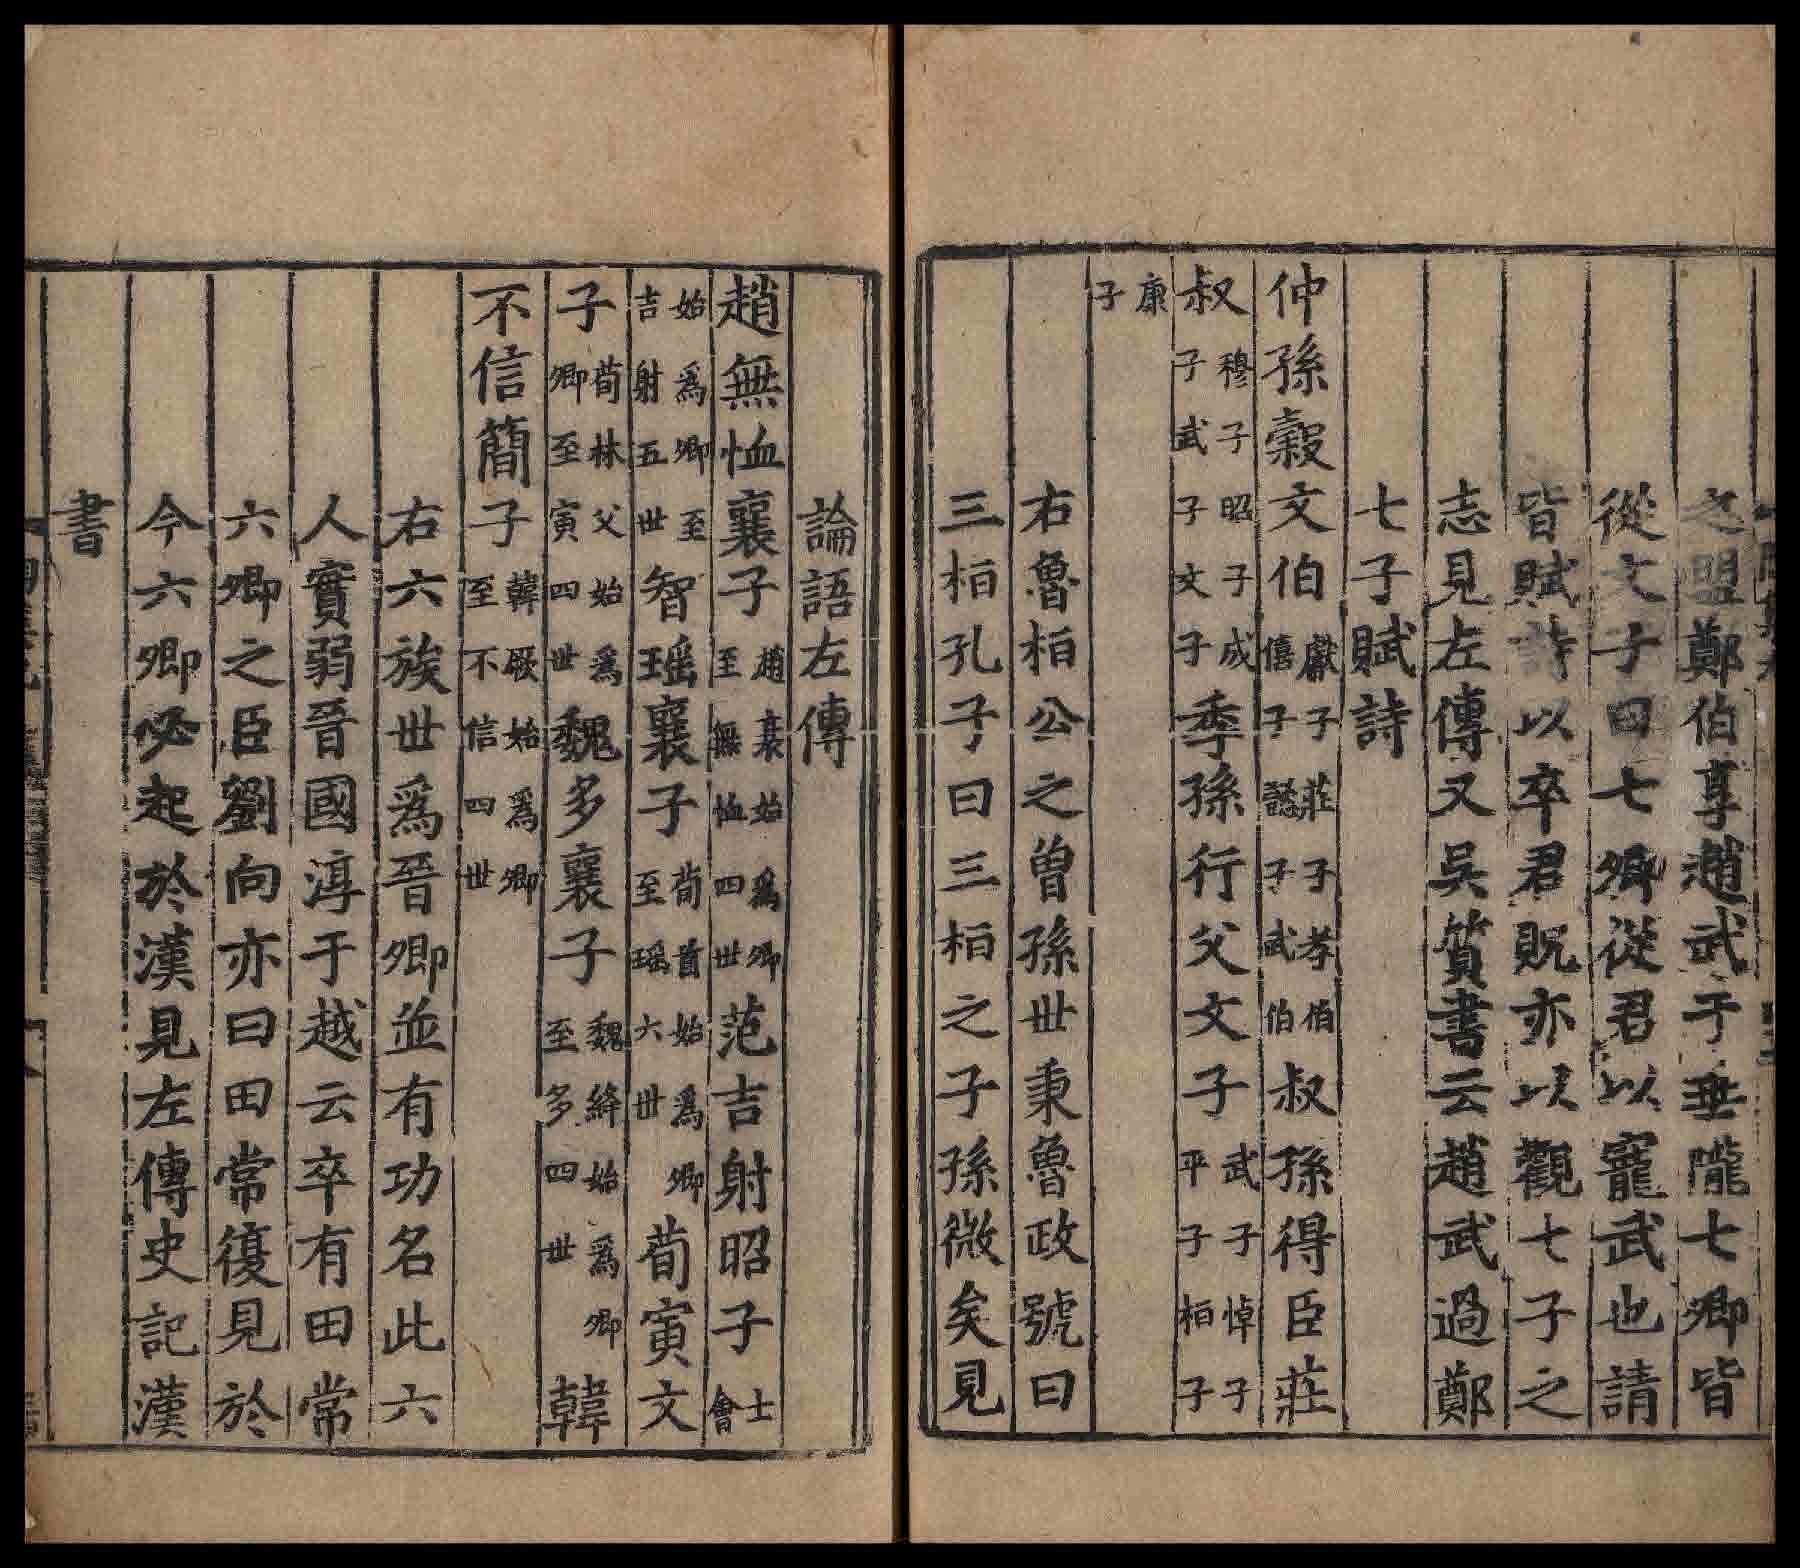 之盟鄭伯享趙武于垂隴七卿皆
從文子曰七卿從君以寵武也請
皆賦詩以卒君貺亦以觀七子之
志見左傳又吳質書云趙武過鄭
七子賦詩
仲孫糓文伯獻子莊子孝伯僖子懿子武伯叔孫得臣莊
叔穆子昭子成子武子文子季孫行父文子武子悼子平子桓子
康子
右魯桓公之曽孫世秉魯政號曰
三桓孔子曰三桓之子孫微矣見
論語左傳
趙無恤襄子趙衰始爲卿至無恤四世范吉射昭子士會
始爲卿至吉射五世智瑶襄子荀首始爲卿至瑶六世荀寅文
子荀林父始爲卿至寅四世魏多襄子魏絳始爲卿至多四世韓
不信簡子韓厥始爲卿至不信四世
右六族世爲晉卿並有功名此六
人實弱晉國淳于越云卒有田常
六卿之臣劉向亦曰田常復見於
今六卿必起於漢見左傳史記漢
書